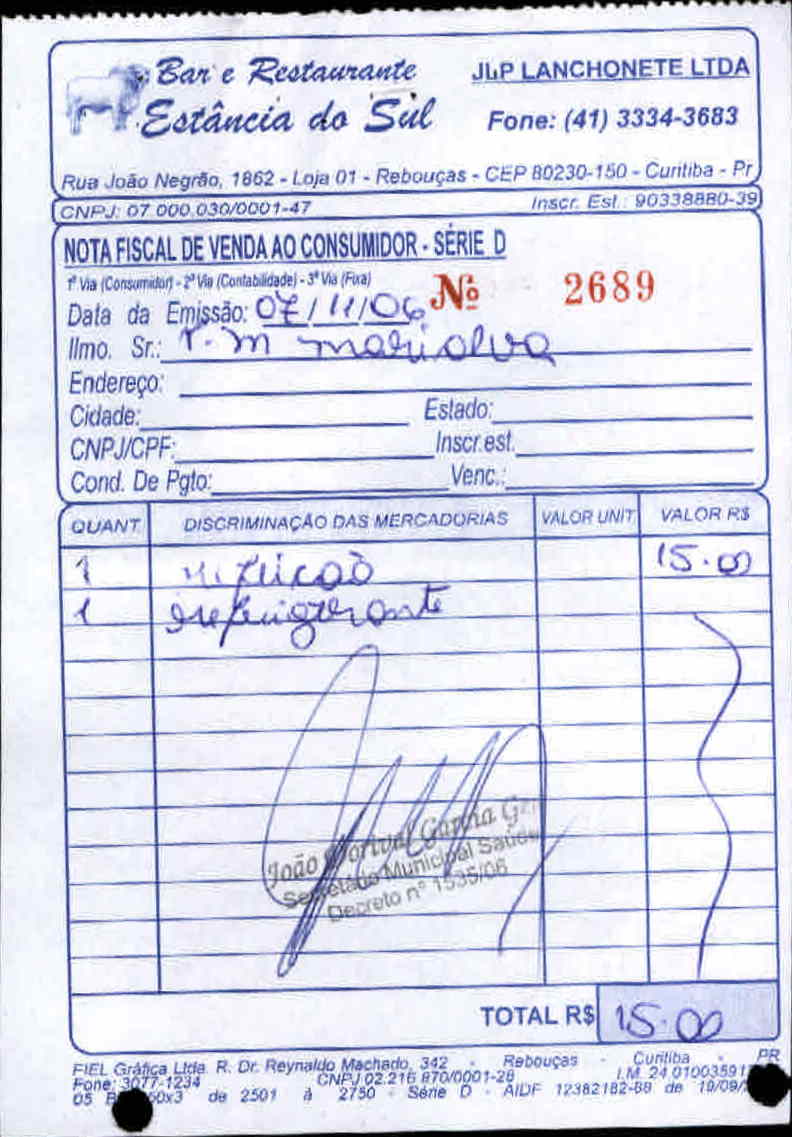 Bar e Restaurante
Estância do Sul
JLP LANCHONETE LTDA
Fone: (41) 3334-3683
Rua João Negrão, 1862 - Loja 01 - Rebouças - CEP 80230-150 - Curitiba - Pr
CNPJ: 07.000.030/0001-47 Inscr. Est.: 90338880-39
NOTA FISCAL DE VENDA AO CONSUMIDOR - SÉRIE D
1ª Via (Consumidor) - 2ª Via (Contabilidade) - 3ª Via (Fixa)
Nº 2689
Data da Emissão: 07/11/06
Ilmo. Sr.: P. M marialva
Endereço:
Cidade: Estado:
CNPJ/CPF: Inscr.est.
Cond. De Pgto: Venc.:
QUANT DISCRIMINAÇÃO DAS MERCADORIAS VALOR UNIT VALOR R$
1 refeição 15.00
1 refrigerante
João Dorival
Secretário Municipal Saúde
Decreto nº 1535/06
TOTAL R$ 15.00
FIEL Gráfica Ltda. R. Dr. Reynaldo Machado, 342 - Rebouças - Curitiba - PR
Fone: 3077-1234 CNPJ 02.216.870/0001-28 I.M. 24.01003591
05 60x3 de 2501 à 2750 - Série D - AIDF 12382182-88 de 19/09/